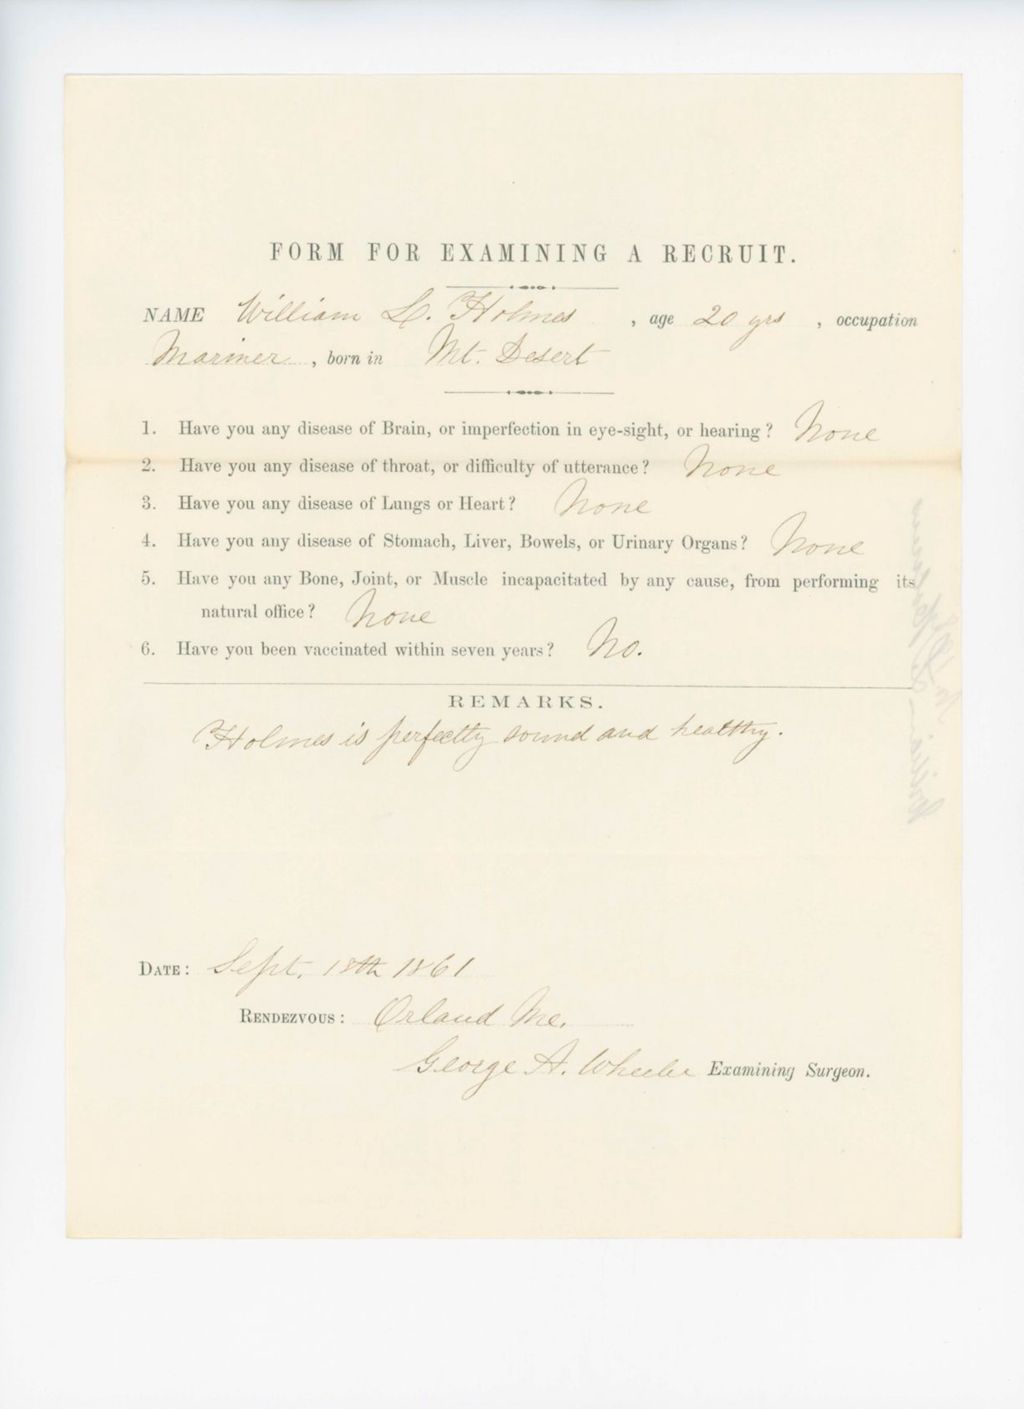 FORM FOR EXAMINING A RECRUIT.
NAME William L. Holmes, age 20 yrs, occupation
Mariner, born in Mt. Desert
1. Have you any disease of Brain, or imperfection in eye-sight, or hearing? None
2. Have you any disease of throat, or difficulty of utterance? None
3. Have you any disease of Lungs or Heart? None
4. Have you any disease of Stomach, Liver, Bowels, or Urinary Organs? None
5. Have you any Bone, Joint, or Muscle incapacitated by any cause, from performing its
natural office? None
6. Have you been vaccinated within seven years? No.
REMARKS.
Holmes is perfectly sound and healthy.
DATE: Sept. 18th 1861
RENDEZVOUS: Orland Me.
George A. Wheeler Examining Surgeon.